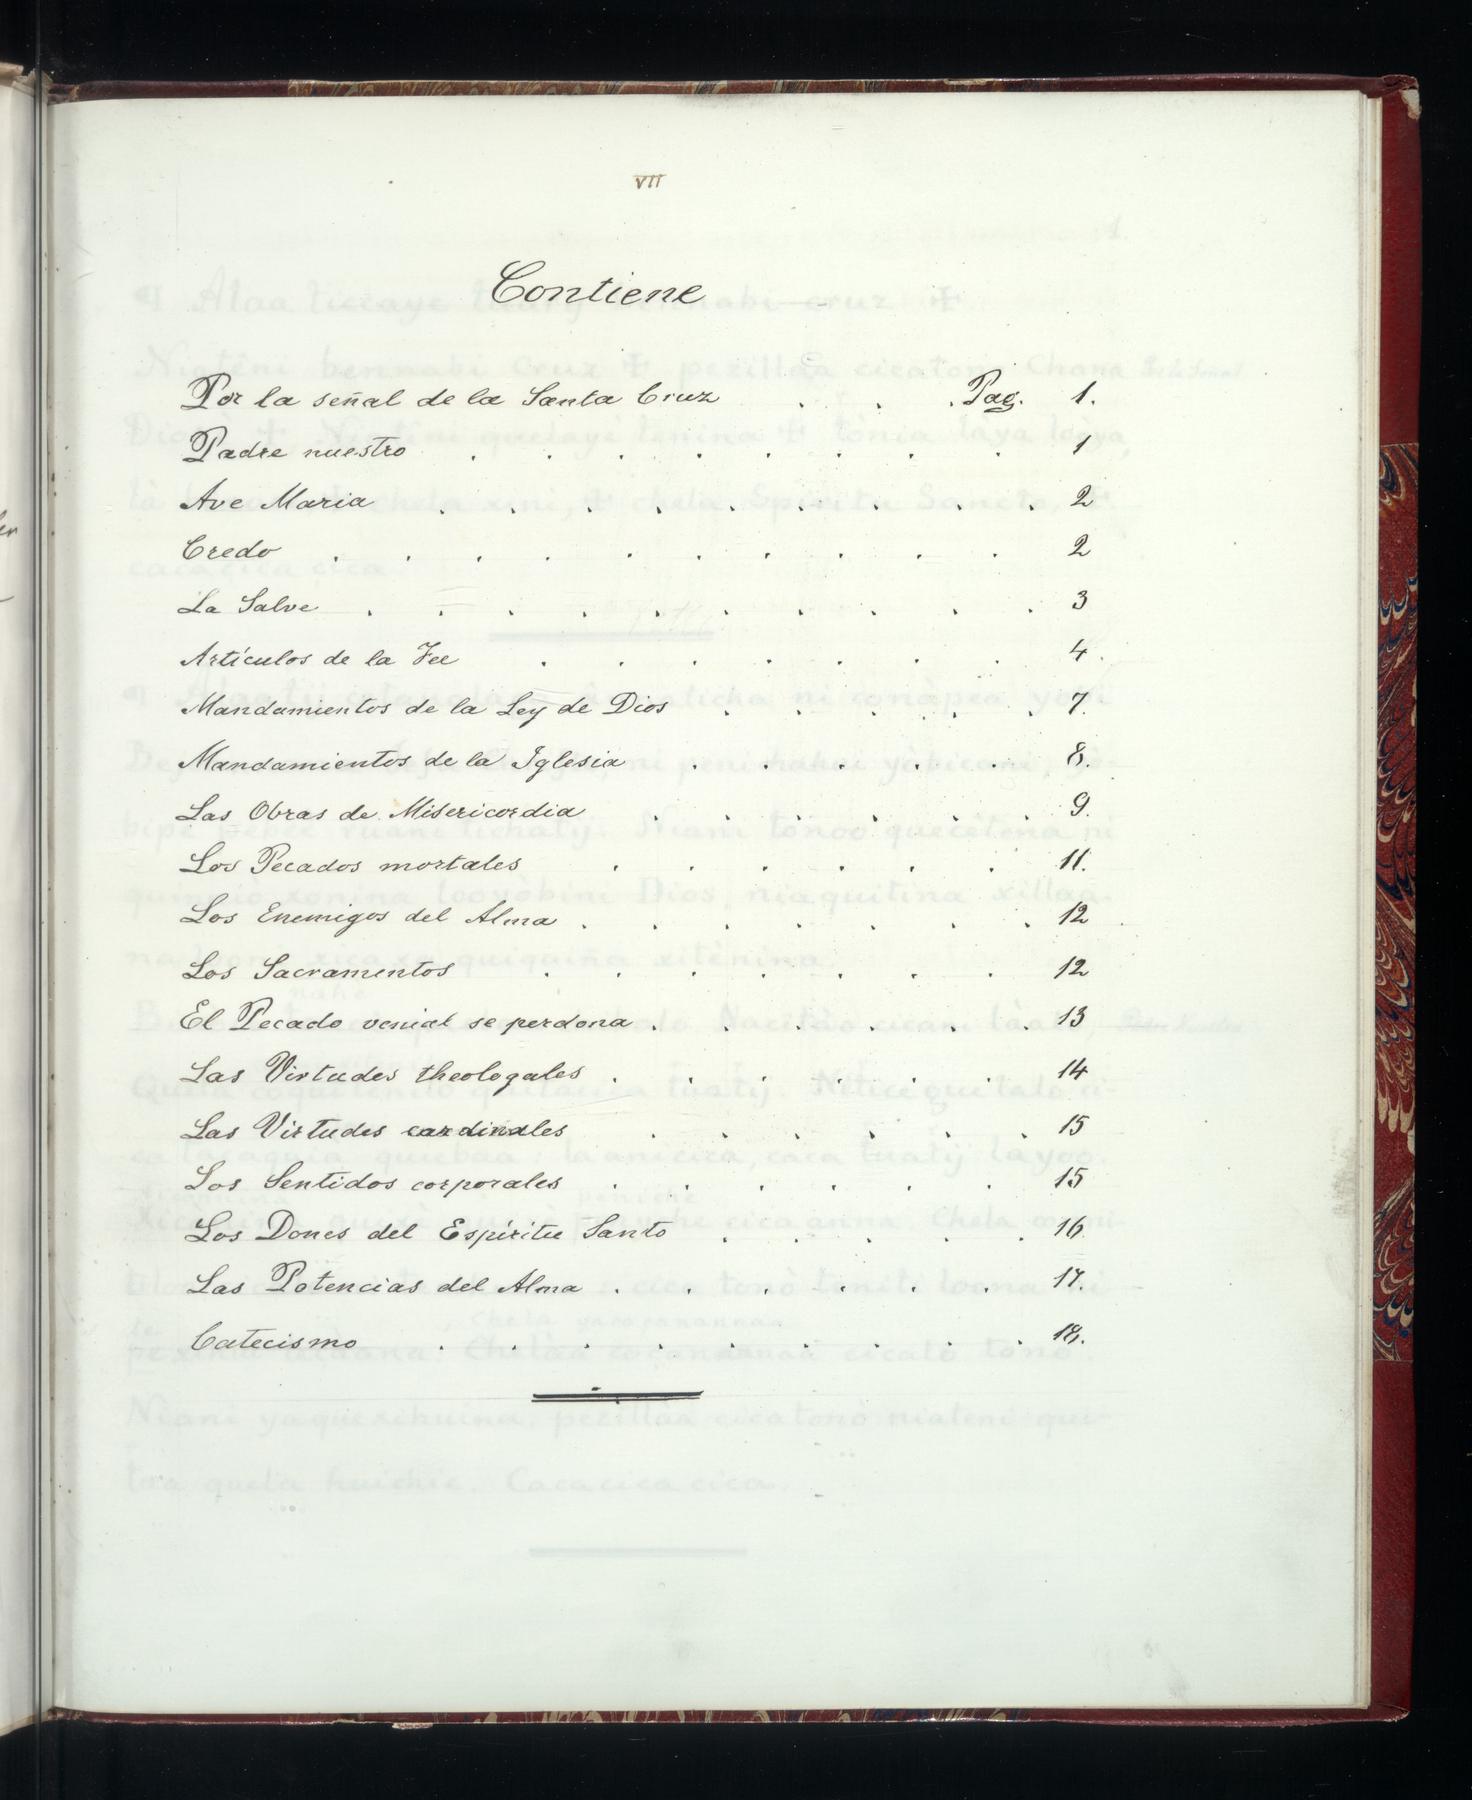 VII
Contiene
Por la señal de la Santa Cruz . . . Pag. 1.
Padre nuestro . . . . . . . . 1
Ave Maria . . . . . . . . . 2
Credo . . . . . . . . . . 2
La Salve . . . . . . . . . . 3
Artículos de la Fee . . . . . . . 4.
Mandamientos de la Ley de Dios . . . . . 7.
Mandamientos de la Iglesia . . . . . 8.
Las Obras de Misericordia . . . . . . 9.
Los Pecados mortales . . . . . . 11.
Los Enemigos del Alma . . . . . . . 12
Los Sacramentos . . . . . . . 12
El Pecado venial se perdona . . . . . . 13
Las Virtudes theologales . . . . . . 14
Las Virtudes cardinales . . . . . . 15
Los Sentidos corporales . . . . . . 15
Los Dones del Espíritu Santo . . . . . 16.
Las Potencias del Alma . . . . . . 17.
Catecismo . . . . . . . . . 18.